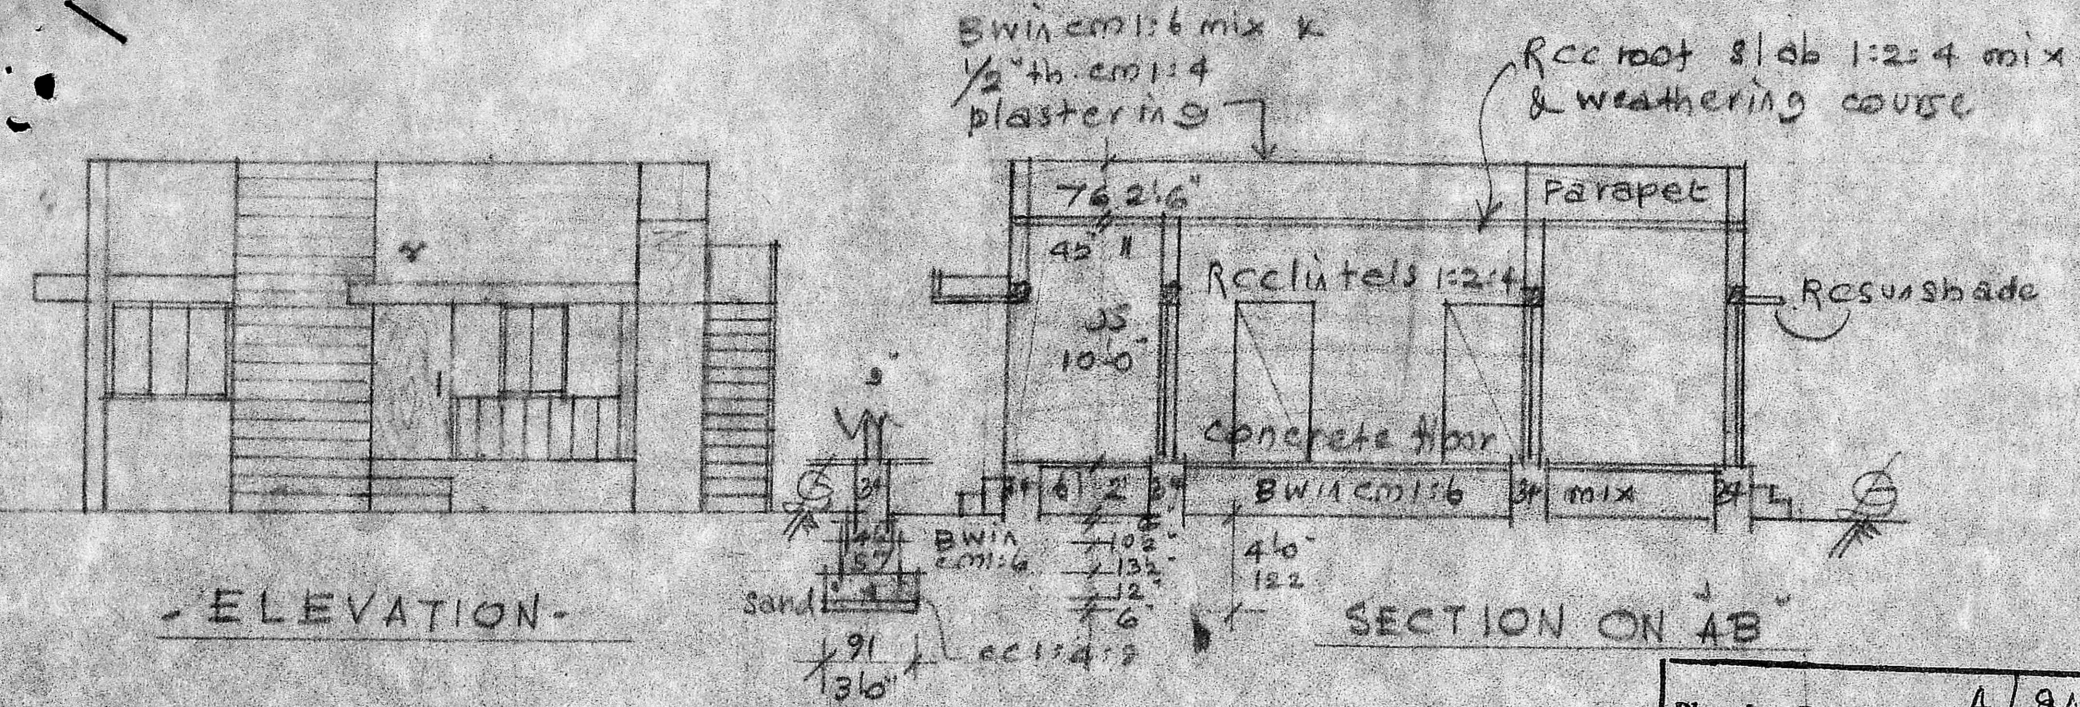 Bwin cm1:6 mix &
1/2" th. cm1:4
plastering
Rcc roof slab 1:2:4 mix
& weathering course
76 2'6"
Parapet
45"
Rcc lintels 1:2:4
Rc sunshade
10-0"
9"
concrete floor
34
34 6 2' 34
Bwin cm1:6
34 mix
34
45
57
Bwin
cm1:6
10½"
13½"
12"
6"
4'0"
122
sand
91
3'0"
cc1:4:8
- ELEVATION -
SECTION ON "AB"